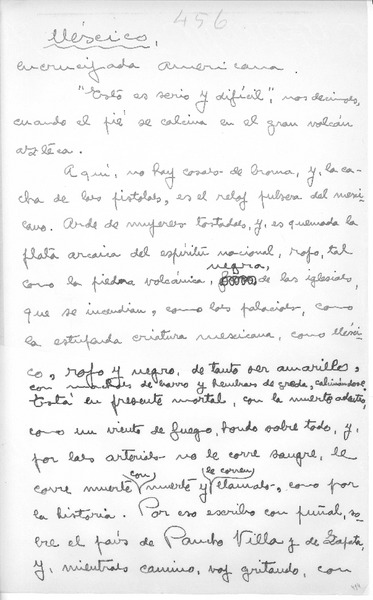 456
México,
encrucijada americana.
"Esto es serio y difícil", nos decimos,
cuando el pié se calcina en el gran volcán
azteca.
Aquí, no hay cosas de broma, y, la ca-
cha de las pistolas, es el reloj pulsera del mexi-
cano. Arde de mujeres tostadas, y, es quemada la
plata arcaica del espíritu nacional, rojo, tal
como la piedra volcánica, negra, de las iglesias,
que se incendian, como los palacios, como
la estupenda criatura mexicana, como Méxi-
co, rojo y negro, de tanto ser amarillo,
con manchas de barro y de greda,
Está en presente mortal, con la muerte adentro,
como un viento de fuego, hondo sobre todo, y,
por las arterias no le corre sangre, le
corre muerte con muerte y le corren llamas, como por
la historia. Por eso escribo con puñal, so-
bre el país de Pancho Villa y de Zapata,
y, mientras camino, voy gritando, con